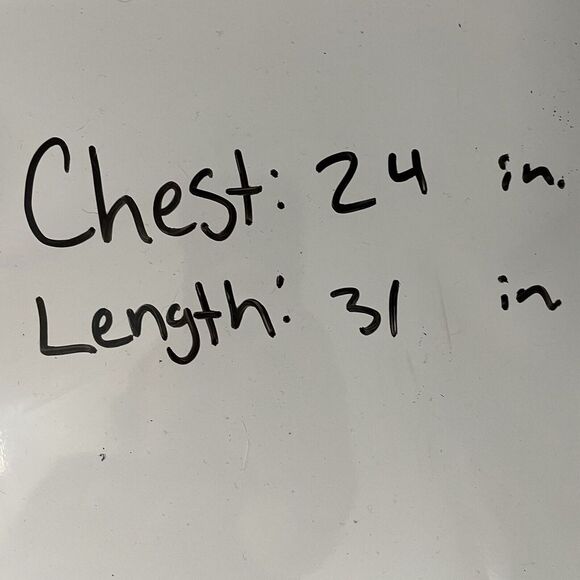 Chest: 24 in.
Length: 31 in